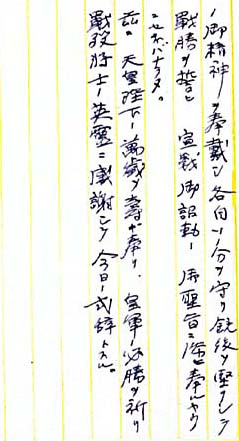 ノ御精神ヲ奉戴シ各自ノ分ヲ守リ銃後ヲ堅クシテ
戰勝ヲ誓ヒ宣戰御詔勅ノ御聖旨ニ添ヒ奉ルヤウ
ニセネバナラヌ。
茲ニ天皇陛下ノ萬歳ヲ壽ギ奉リ、皇軍ノ必勝ヲ祈リ
戰歿將士ノ英靈ニ感謝シテ今日ノ式辭トスル。